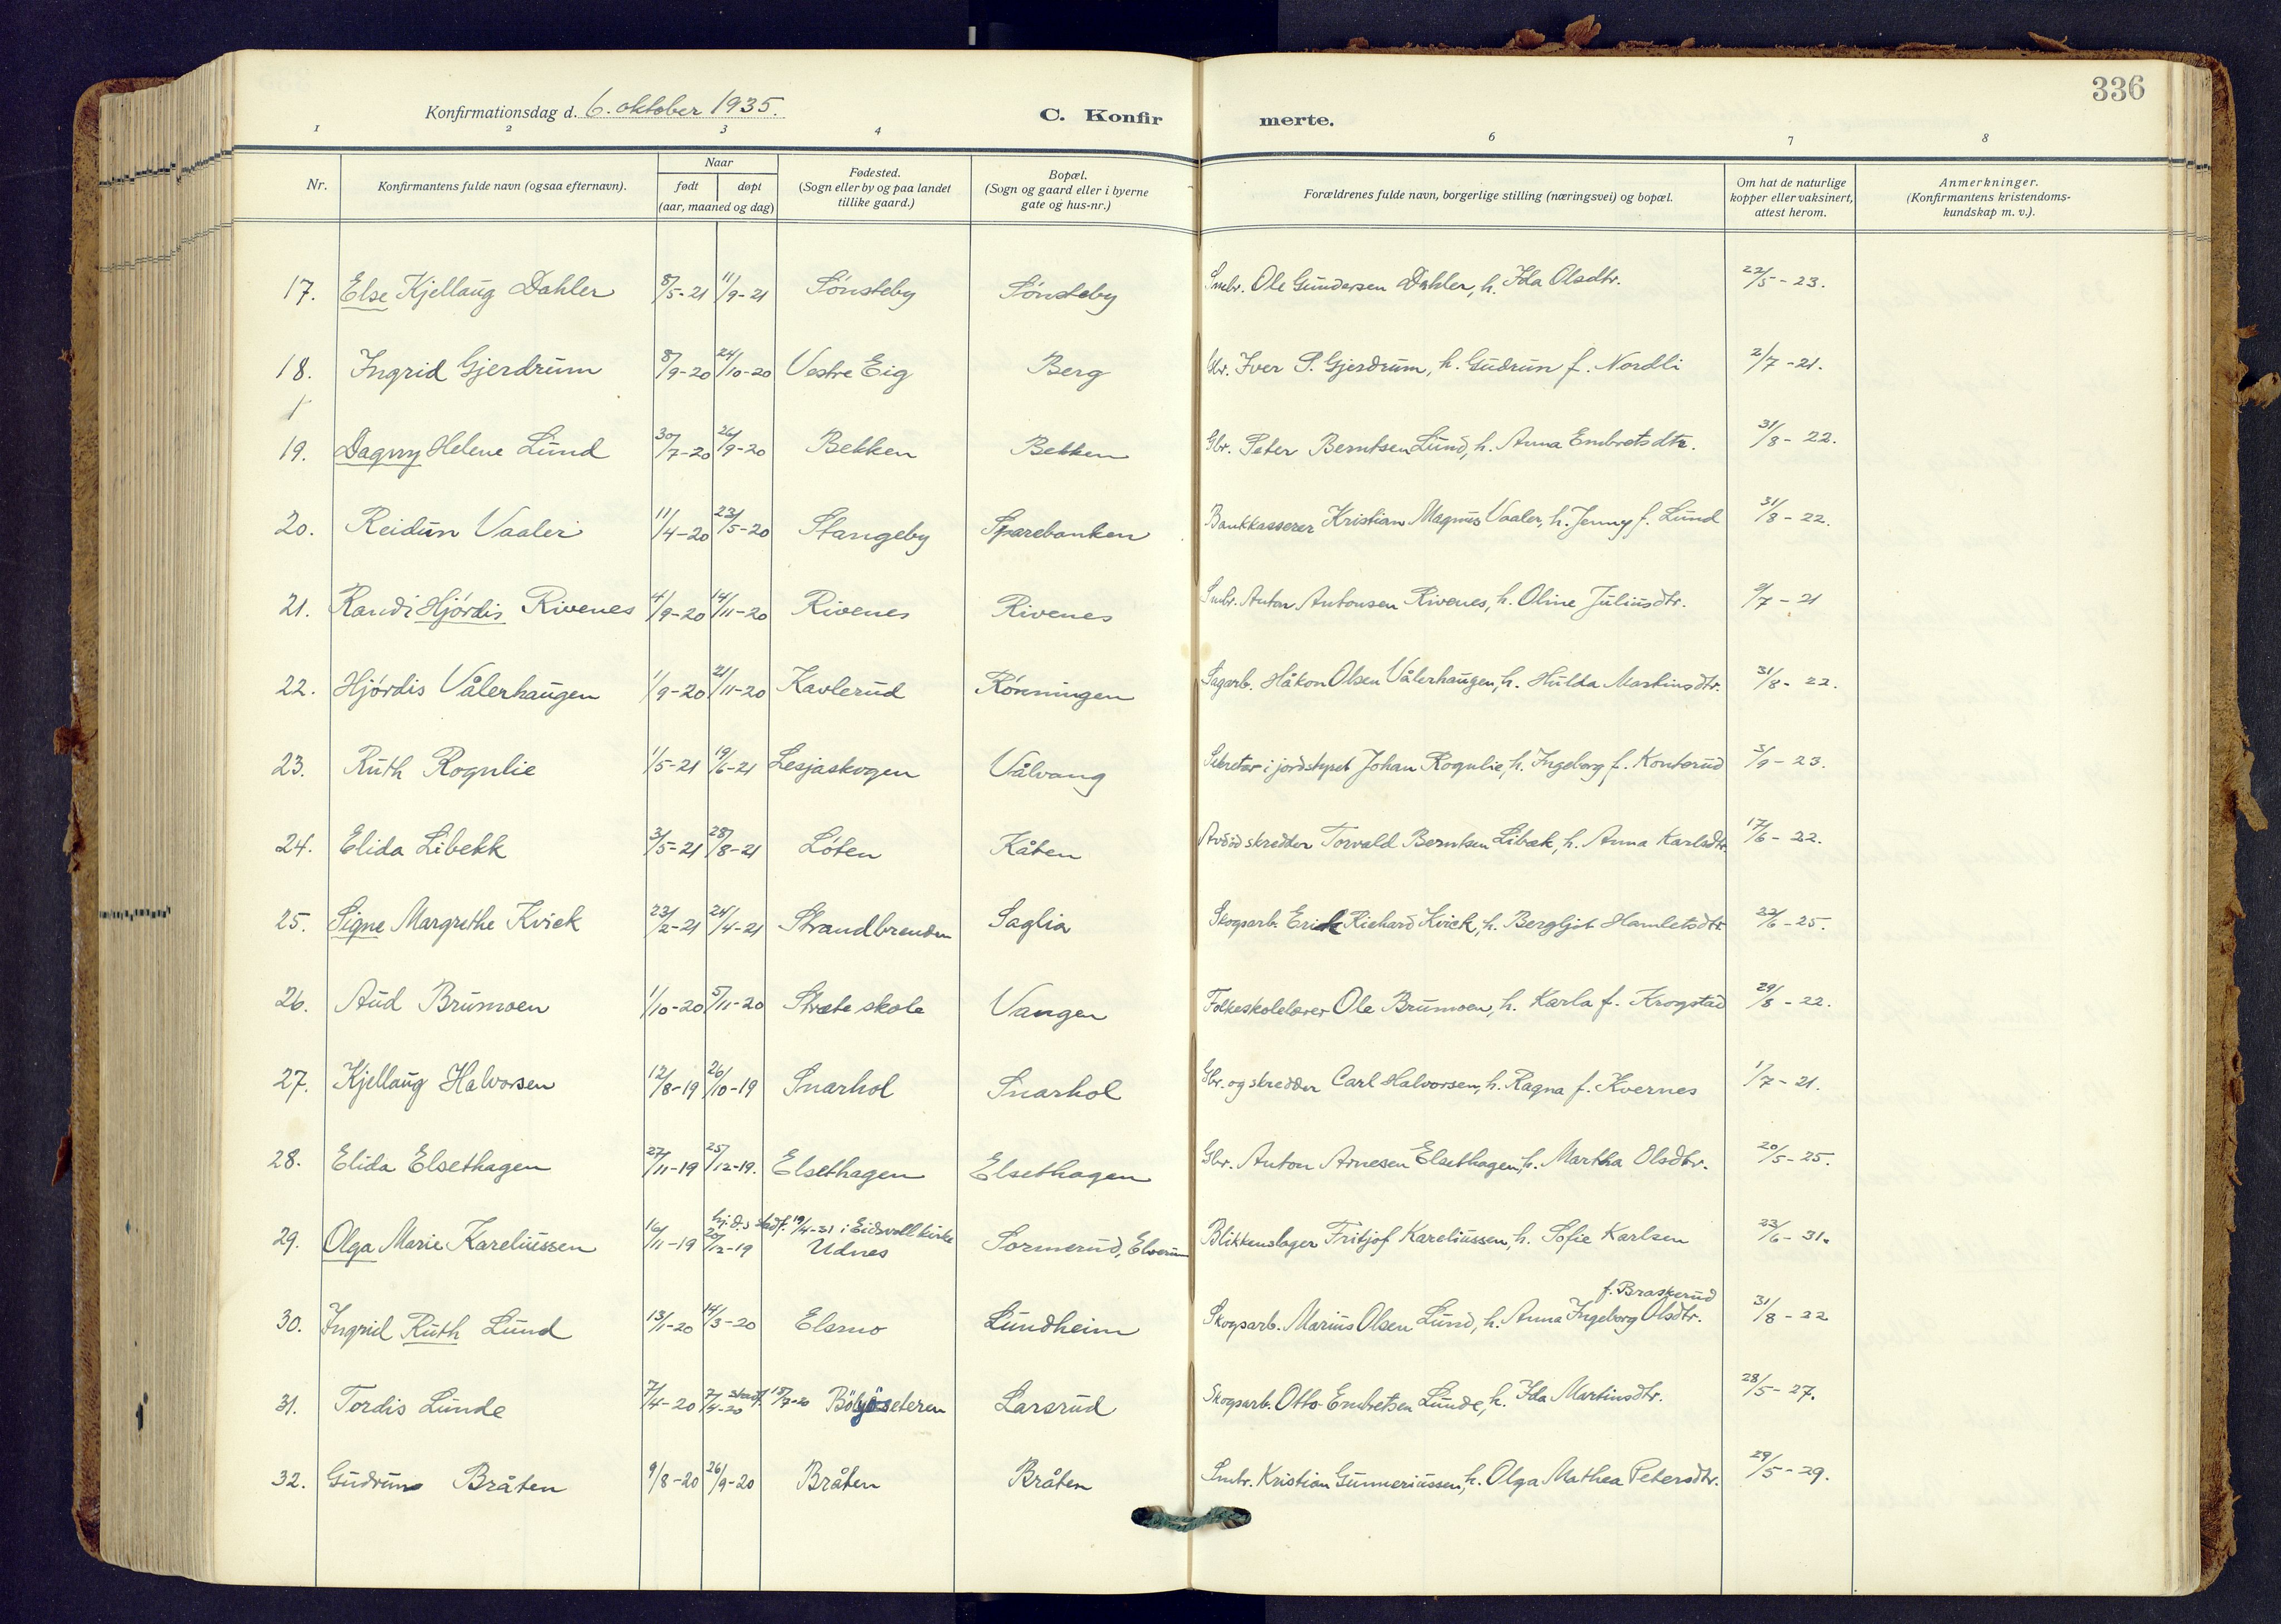 336
Konfirmationsdag d. 6. oktober 1935.
C. Konfir merte.
1 2 3 4 6 7 8
Nr.
Konfirmantens fulde navn (ogsaa efternavn).
Naar
født døpt
(aar, maaned og dag)
Fødested.
(Sogn eller by og paa landet
tillike gaard.)
Bopæl.
(Sogn og gaard eller i byerne
gate og hus-nr.)
Forældrenes fulde navn, borgerlige stilling (næringsvei) og bopæl.
Om hat de naturlige
kopper eller vaksinert,
attest herom.
Anmerkninger.
(Konfirmantens kristendoms-
kundskap m. v.).
17. Else Kjellaug Dahler 8/5-21 11/9-21 Sønsteby Sønsteby Smbr. Ole Gundersen Dahler, h. Ida Olsdtr. 22/5-23.
18. Ingrid Gjerdrum 8/9-20 24/10-20 Vestre Eig Berg Gbr. Iver P. Gjerdrum, h. Gudrun f. Nordli 2/7-21.
19. Dagny Helene Lund 30/7-20 26/9-20 Bekken Bekken Gbr. Peter Berntsen Lund, h. Anna Embretsdtr. 31/8-22.
20. Reidun Vaaler 11/4-20 23/5-20 Stangeby Sparebanken Bankkasserer Kristian Magnus Vaaler, h. Jenny f. Lund 31/8-22.
21. Randi Hjørdis Rivenes 4/9-20 14/11-20 Rivenes Rivenes Smbr. Anton Antonsen Rivenes, h. Oline Juliusdtr. 2/7-21
22. Hjørdis Vålerhaugen 1/9-20 21/11-20 Kavlerud Rønningen Sagarb. Håkon Olsen Vålerhaugen, h. Hulda Martinsdtr. 31/8-22.
23. Ruth Rognlie 1/5-21 19/6-21 Lesjaskogen Vålvang Sekretær i jordstyret Johan Rognlie, h. Ingeborg f. Konterud 3/9-23.
24. Elida Libekk 3/5-21 28/8-21 Løten Kåten Avdød skredder Torvald Berntsen Libæk, h. Anna Karlsdtr. 17/6-22.
25. Signe Margrethe Kvick 23/2-21 24/4-21 Strandbrenden Saglia Skogsarb. Erick Richard Kvick, h. Bergljot Hamletsdtr. 22/6-25.
26. Aud Brumoen 1/10-20 5/11-20 Stræte skole Vangen Folkeskolelærer Ole Brumoen, h. Karla f. Krogstad 29/8-22.
27. Kjellaug Halvorsen 12/8-19 26/10-19 Snarhol Snarhol Gbr. og skredder Carl Halvorsen, h. Ragna f. Kvernes 1/7-21.
28. Elida Elsethagen 27/11-19 25/12-19. Elsethagen Elsethagen Gbr. Anton Arnesen Elsethagen, h. Martha Olsdtr. 20/5-25.
hj.d. stadf. 19/4-31 i Eidsvoll kirke
29. Olga Marie Kareliussen 16/11-19 20/12-19 Udnes Sormerud, Elverum Blikkenslager Fritjof Kareliussen, h. Sofie Karlsen 23/6-31.
f. Braskerud
30. Ingrid Ruth Lund 13/1-20 14/3-20 Elsmo Lundheim Skogsarb. Marius Olsen Lund, h. Anna Ingeborg Olsdtr. 31/8-22
31. Tordis Lunde 7/4-20 7/4-20 stadf. 18/7-20 Bölgöseteren Larsrud Skogsarb. Otto Embretsen Lunde, h. Ida Martinsdtr. 28/5-27.
32. Gudrun Bråten 9/8-20 26/9-20 Bråten Bråten Smbr. Kristian Gunneriussen, h. Olga Mathea Petersdtr. 29/5-29.